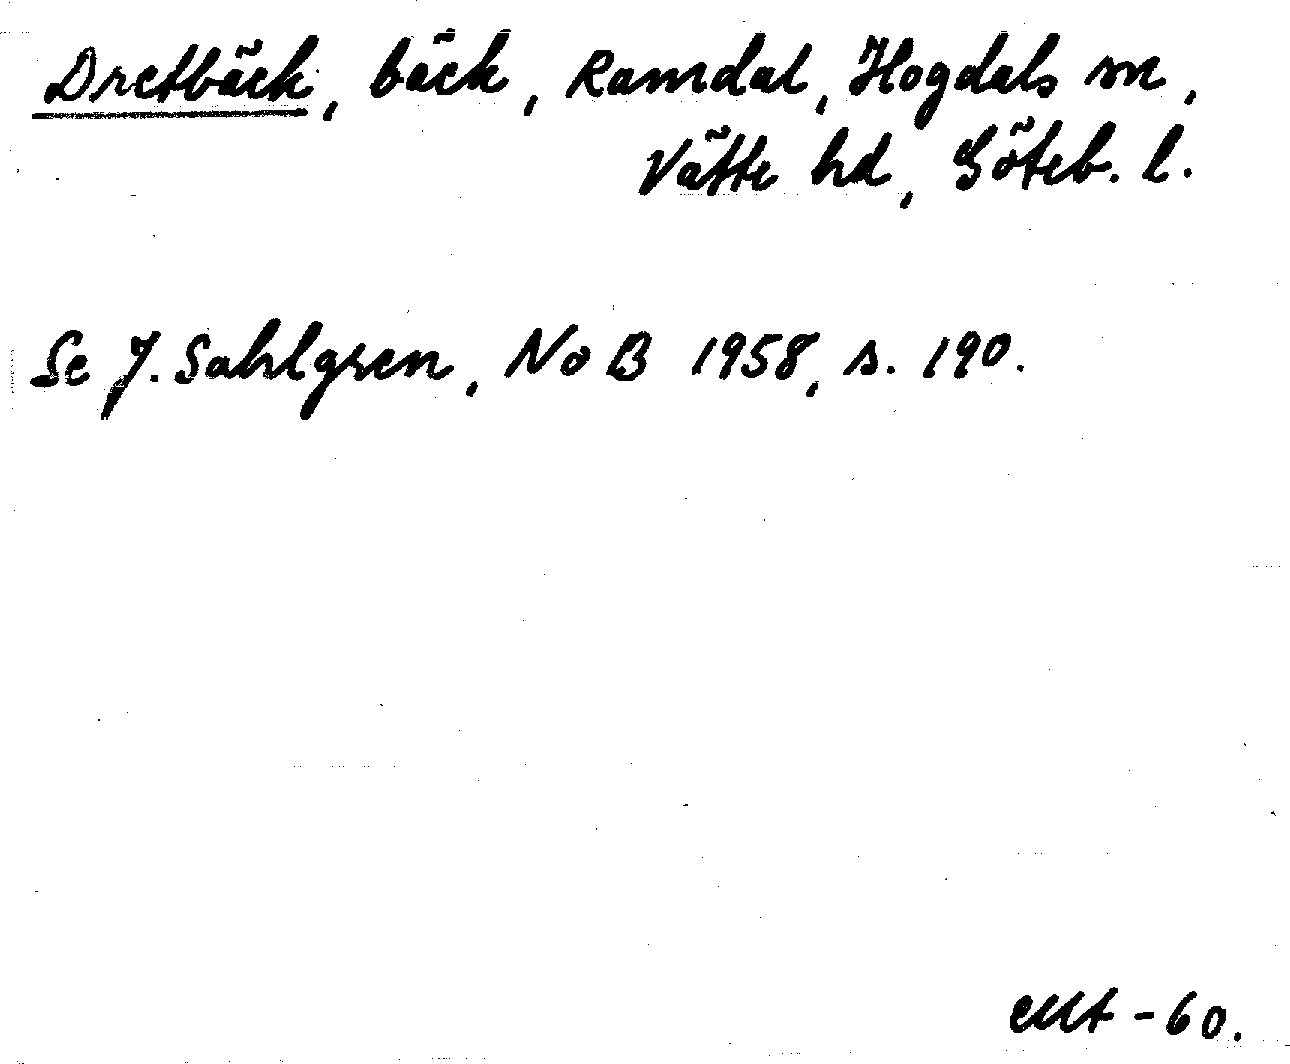 Dretbäck, bäck, Ramdal, Hogdals sn,
Vätte hd, Göteb. l.
Se J. Sahlgren, NoB 1958, s. 190.
-60.